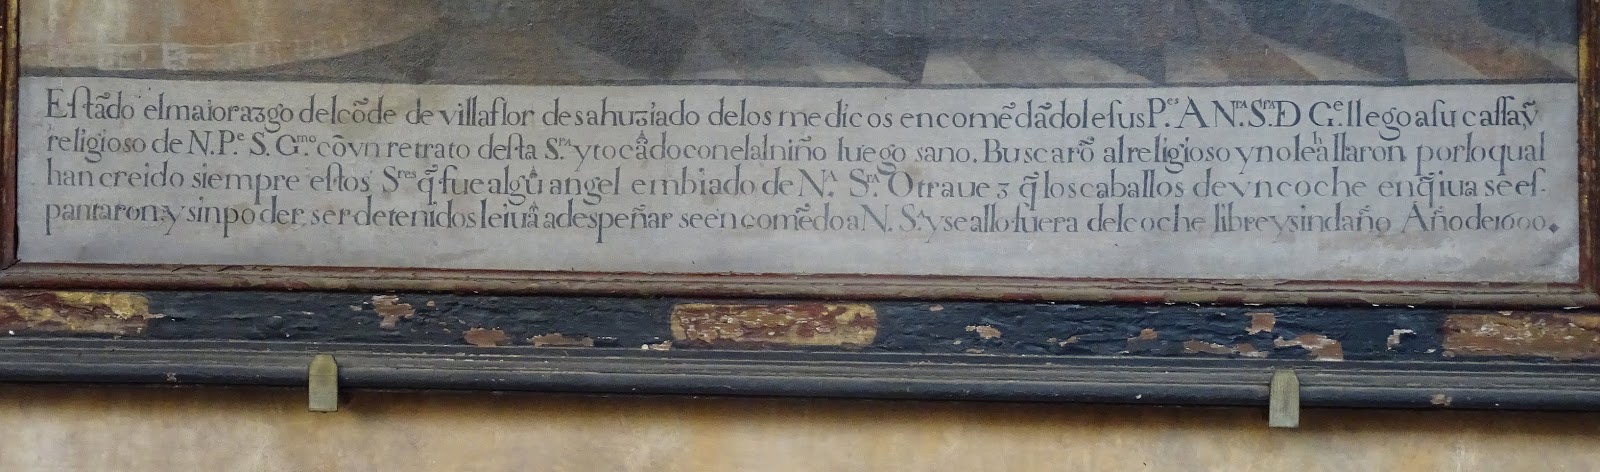 Eſtãdo el maiorazgo del cõde de villaflor desahuziado de los medicos encomẽdãdole ſus P.es A N.ra S.ra D G.e llego a ſu caſſa ṽ
religioso de N. P.e S. G.mo cõ vn retrato deſta S.ra y tocãdo con el al niño luego sano. Buscarõ al religioso y no le hallaron por lo qual
han creido siempre eſtos S.res q̃ fue algũ angel embiado de N.a S.ra Otra ue z q̃ los caballos de vn coche en q̃ iua se eſ-
pantaron, y sin poder, ser detenidos le iuã a despeñar se encomẽdo a N. S.a y se allo fuera del coche libre y sin daño Año de 1600.